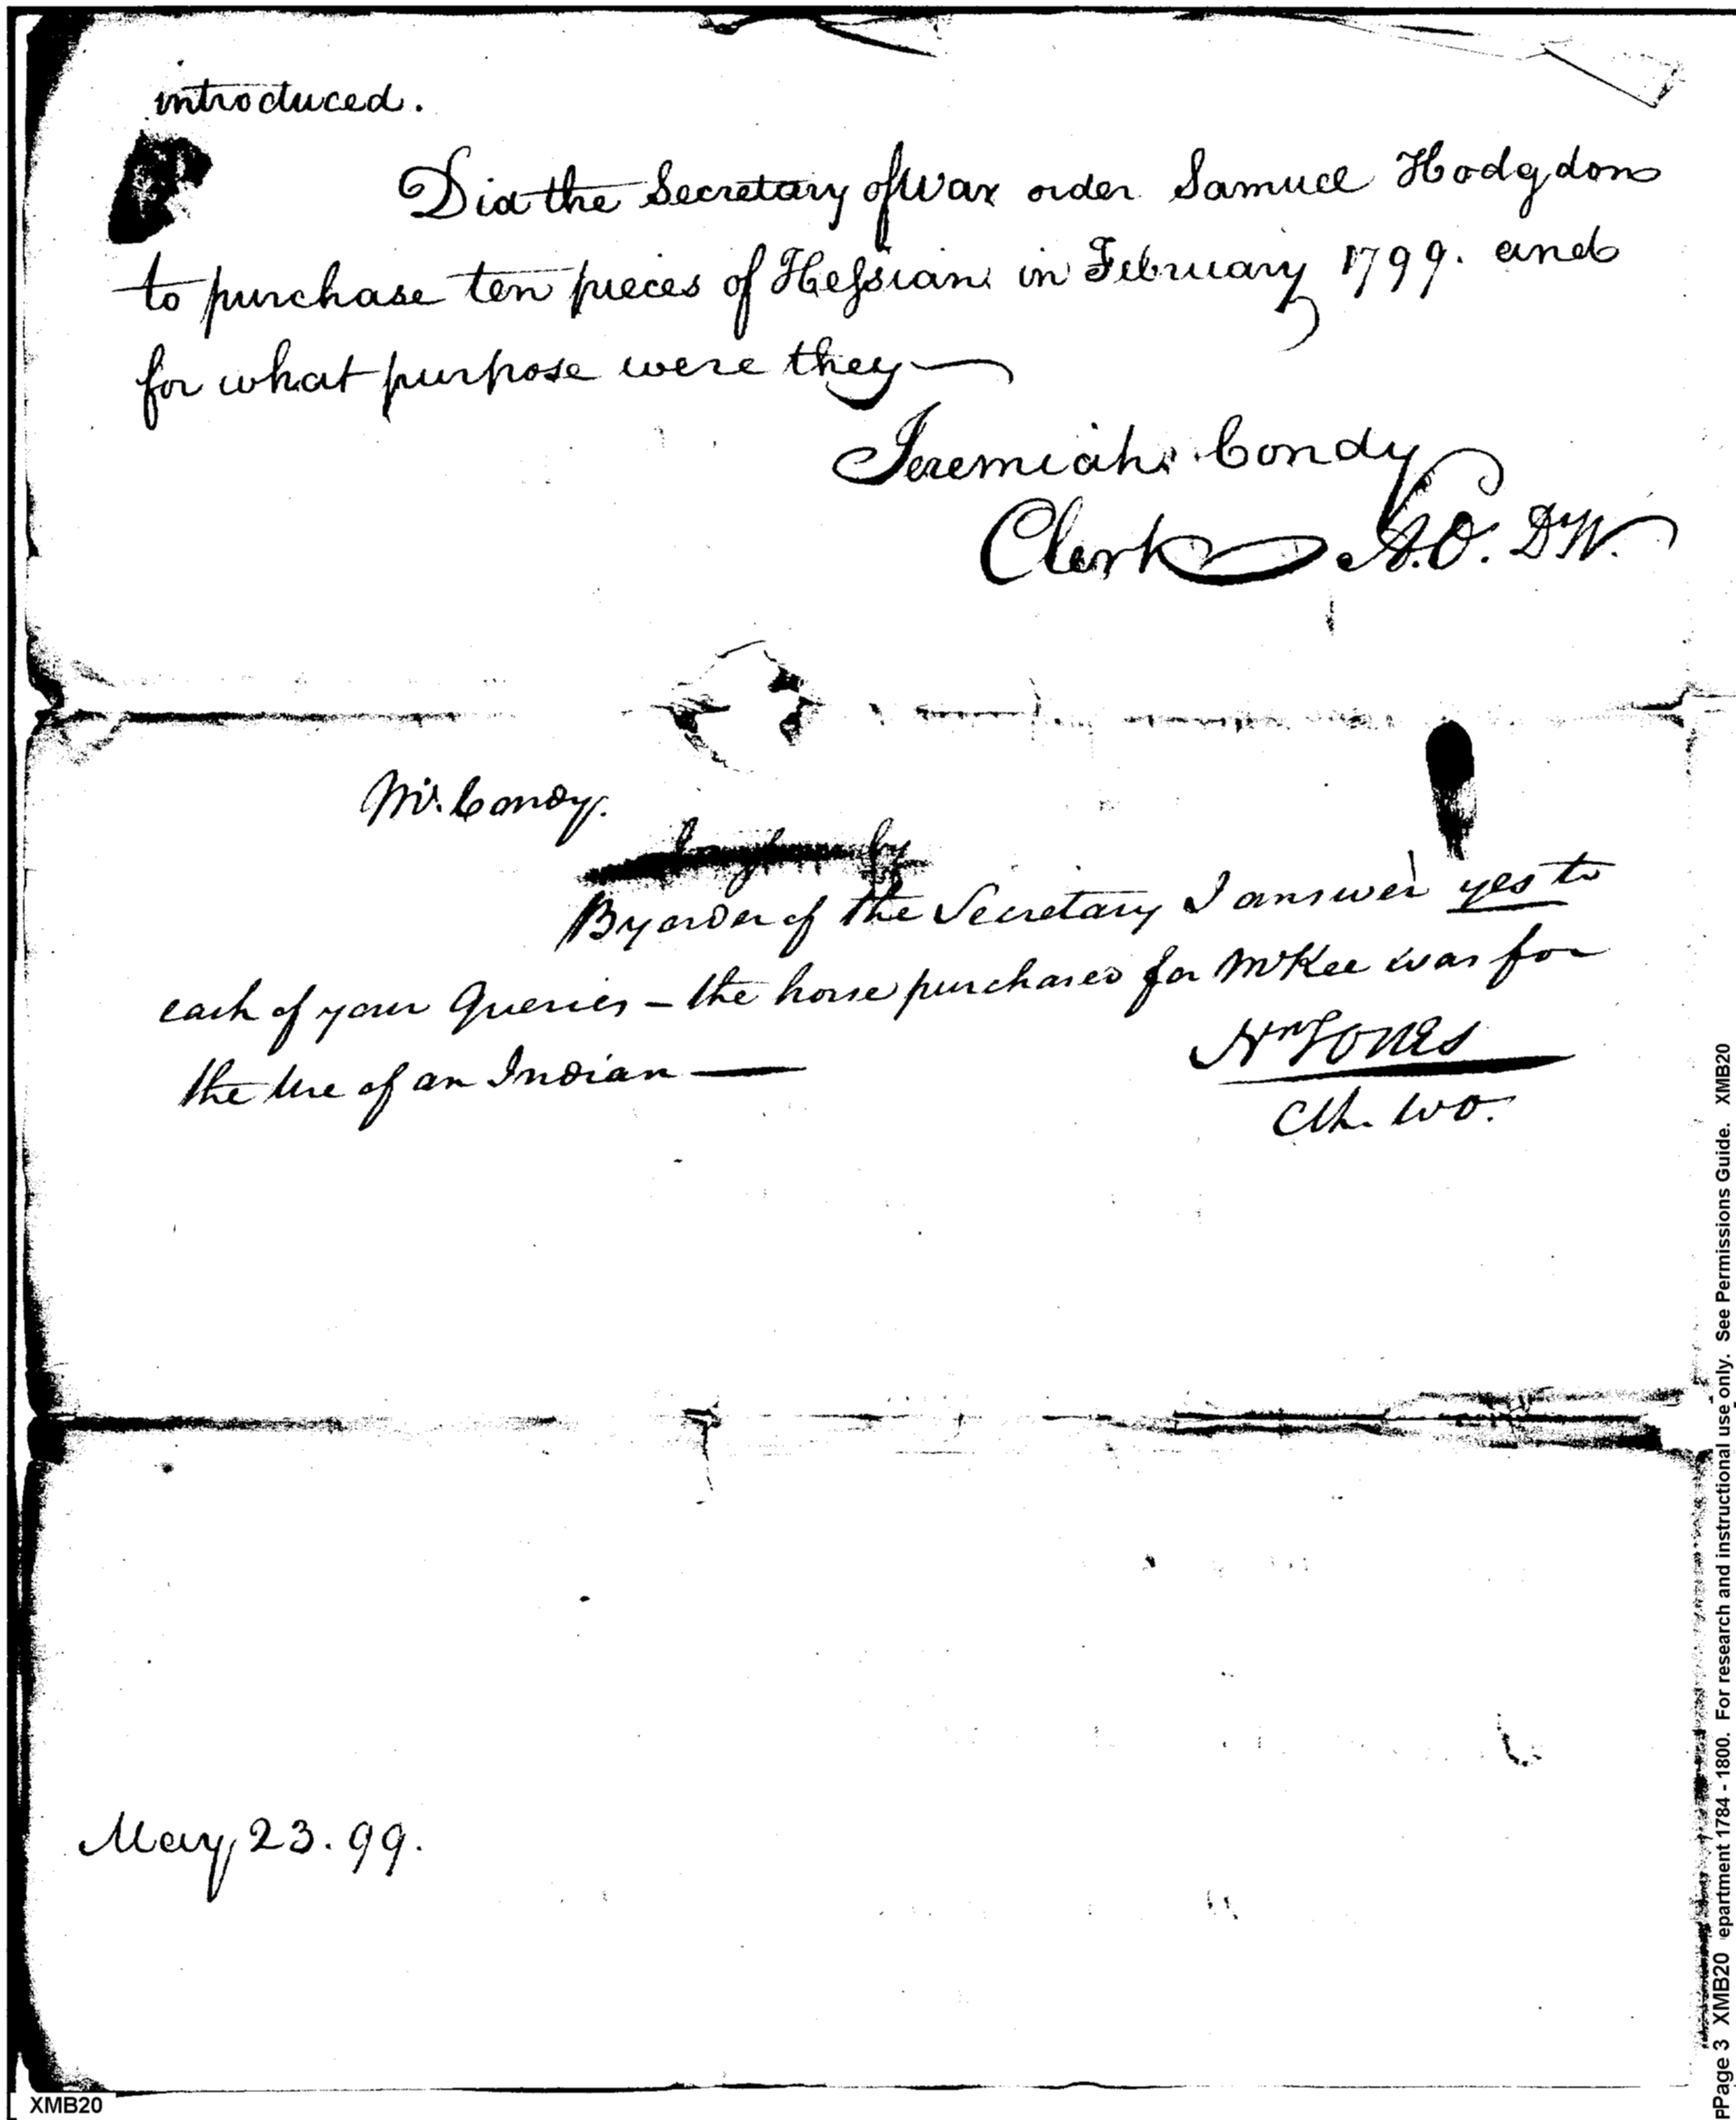 introduced.
Did the Secretary of War order Samuel Hodgdon
to purchase ten pieces of Hessian in February 1799. and
for what purpose were they —
Jeremiah Condy
Clerk A.O. DW.
Mr. Condy.
By order of the Secretary I answer yes to
each of your Queries – the horse purchased for McKee was for
the Use of an Indian —
Wm Jones
Clk. WO.
May 23. 99.
XMB20
pPage 3 XMB20 epartment 1784 - 1800. For research and instructional use only. See Permissions Guide. XMB20